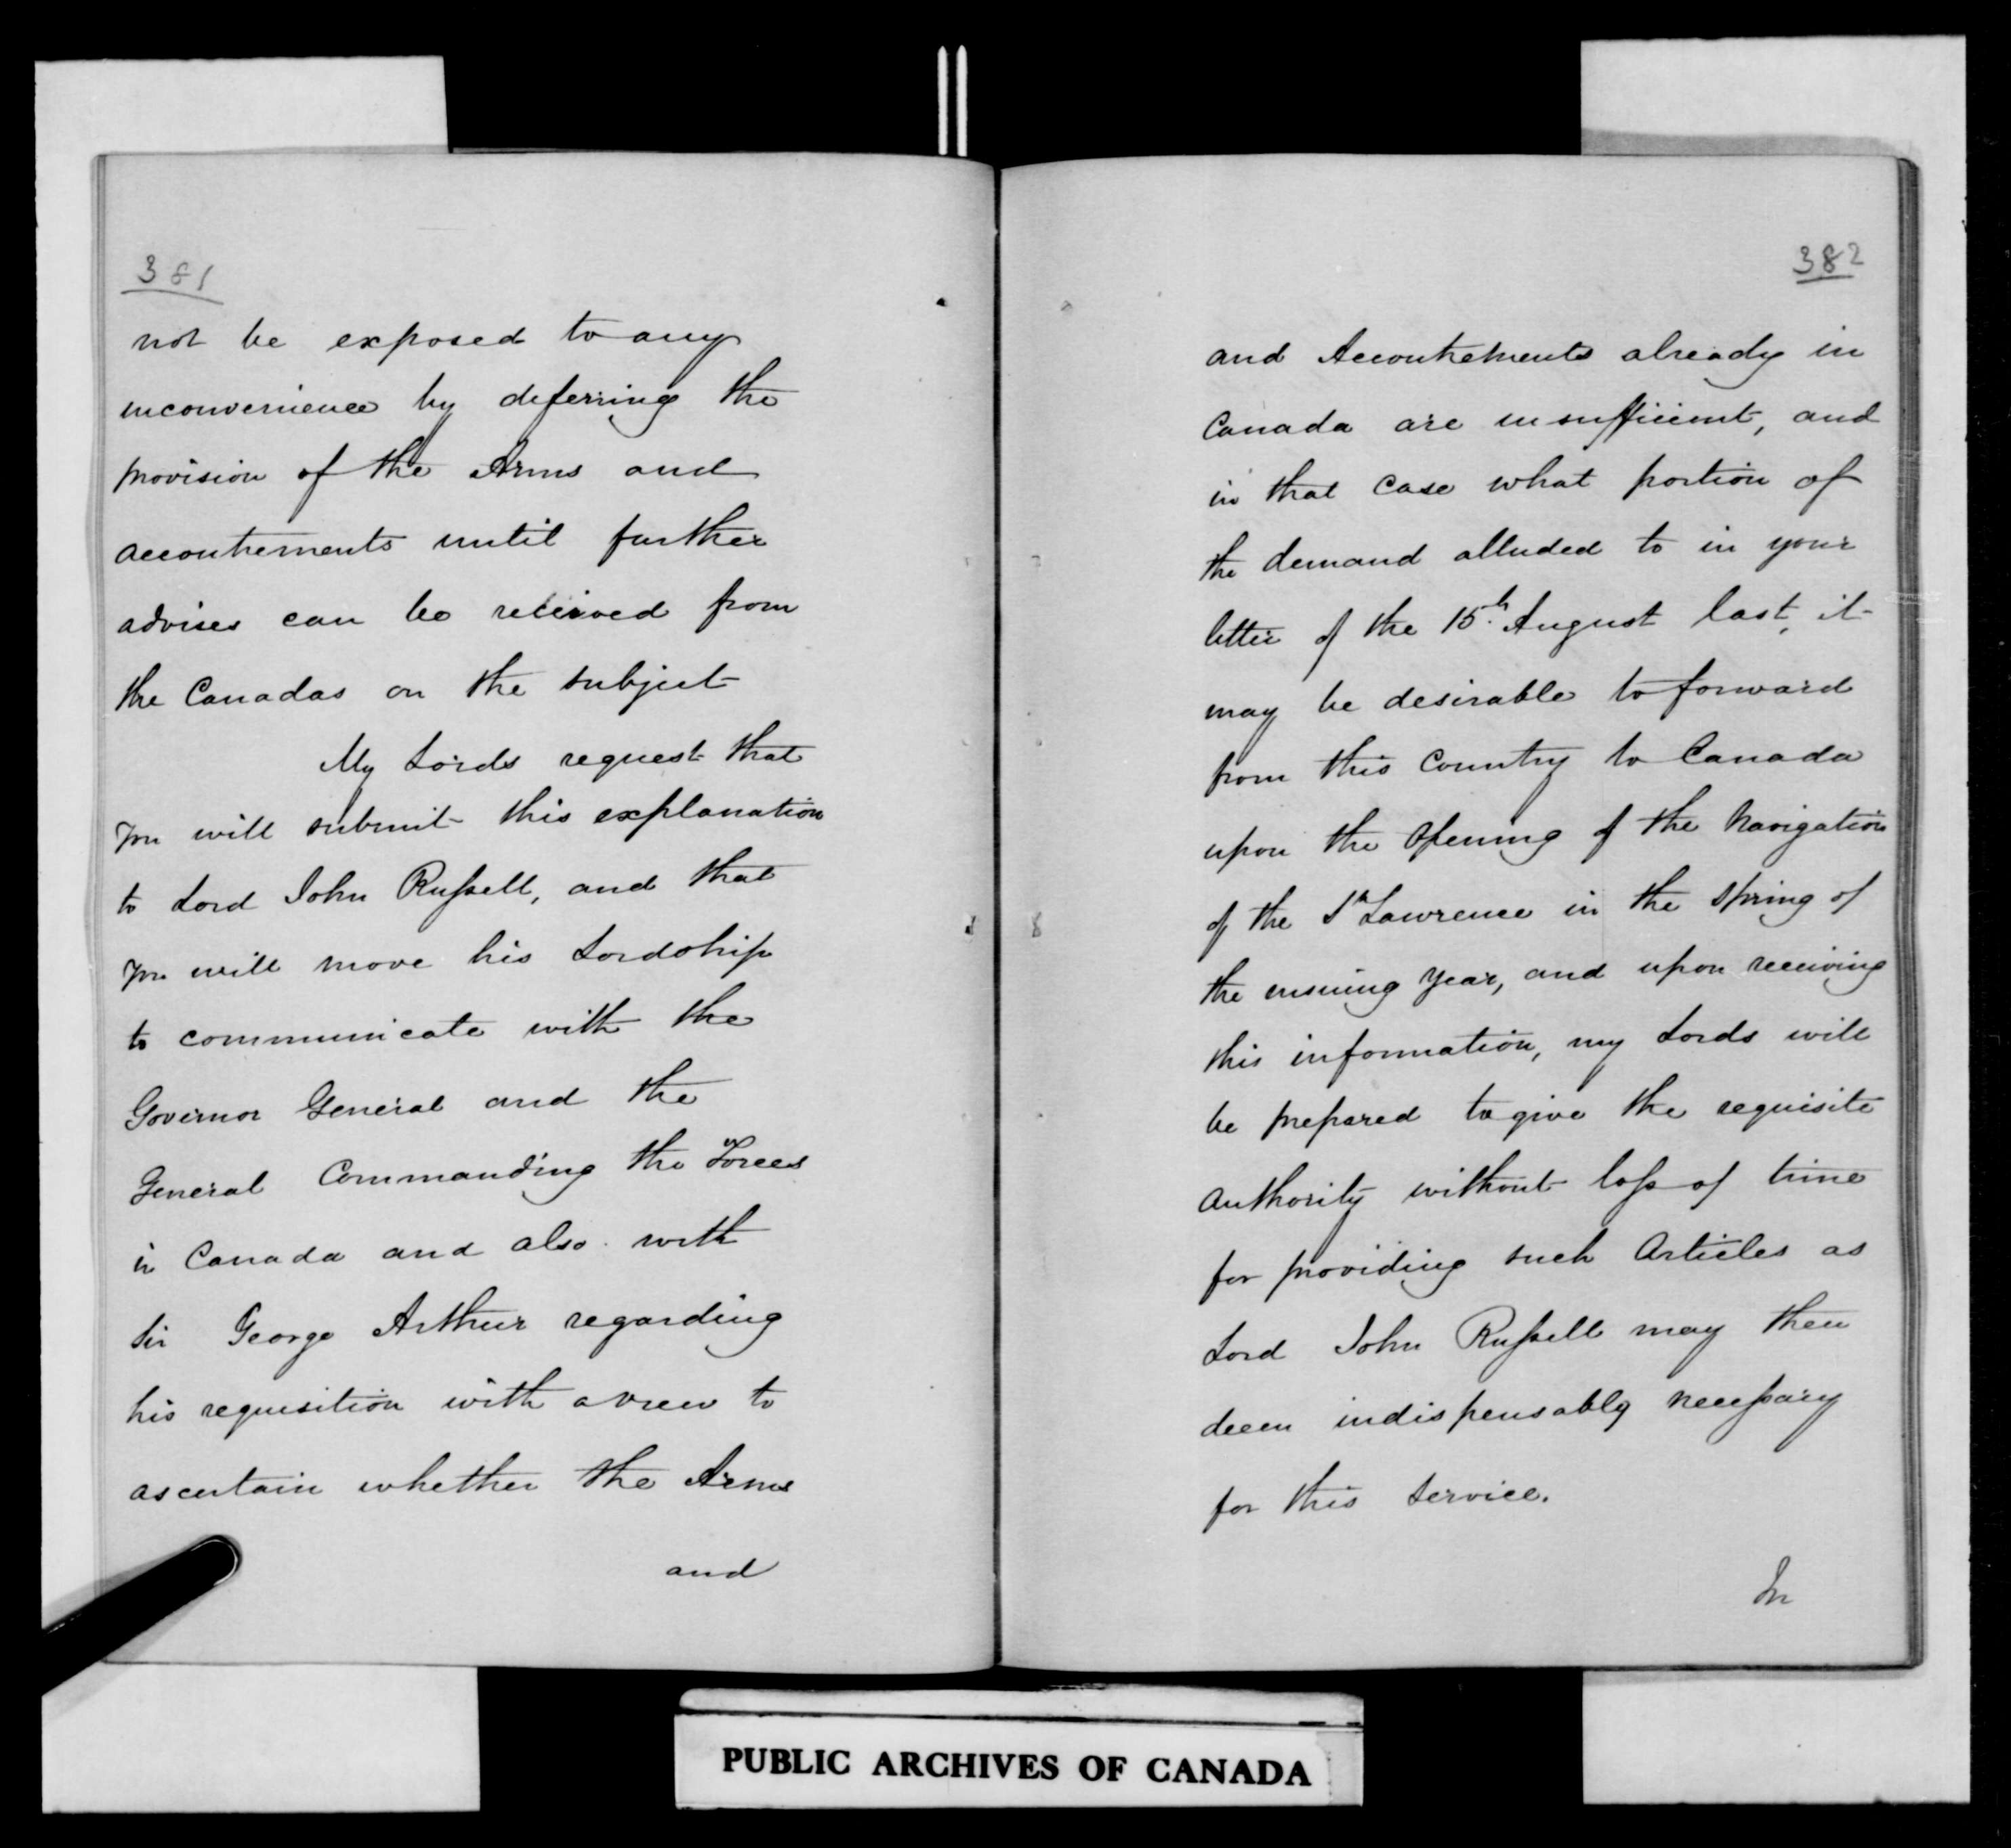 381
not be exposed to any
inconvenience by deferring the
provision of the Arms and
accoutrements until further
advises can be received from
the Canadas on the subject
My Lords request that
you will submit this explanation
to Lord John Russell, and that
you will move his Lordship
to communicate with the
Governor General and the
General Commanding the Forces
in Canada and also with
Sir George Arthur regarding
his requisition with a view to
ascertain whether the Arms
and
382
and Accoutrements already in
Canada are insufficient, and
in that case what portion of
the demand alluded to in your
letter of the 15th August last, it
may be desirable to forward
from this Country to Canada
upon the opening of the Navigation
of the St Lawrence in the Spring of
the ensuing year, and upon receiving
this information, my Lords will
be prepared to give the requisite
authority without loss of time
for providing such Articles as
Lord John Russell may then
deem indispensably necessary
for this Service.
In
PUBLIC ARCHIVES OF CANADA